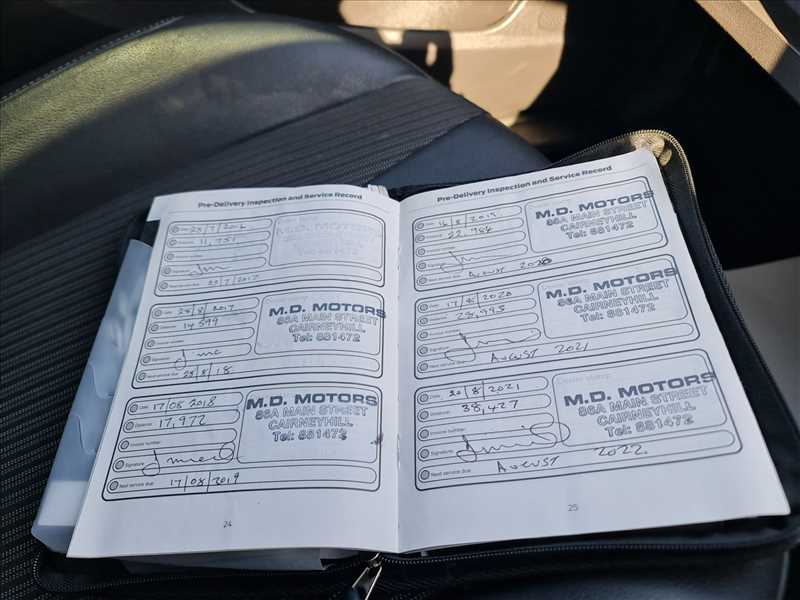 Pre-Delivery Inspection and Service Record
Date 28/7/2016
Distance 11,751
Invoice number
Signature
Next service due 20/7/2017
M.D. MOTORS
86A MAIN STREET
CAIRNEYHILL
Tel: 881472
Date 28/8/2017
Distance 14,599
Invoice number
Signature
Next service due 28/8/18
M.D. MOTORS
86A MAIN STREET
CAIRNEYHILL
Tel: 881472
Date 17/08/2018
Distance 17,972
Invoice number
Signature
Next service due 17/08/2019
M.D. MOTORS
86A MAIN STREET
CAIRNEYHILL
Tel: 881472
24
Pre-Delivery Inspection and Service Record
Date 16/8/2019
Distance 22,986
Invoice number
Signature
Next service due AUGUST 2020
M.D. MOTORS
86A MAIN STREET
CAIRNEYHILL
Tel: 881472
Date 17/8/2020
Distance 28,995
Invoice number
Signature
Next service due AUGUST 2021
M.D. MOTORS
86A MAIN STREET
CAIRNEYHILL
Tel: 881472
Date 20/8/2021
Distance 38,427
Invoice number
Signature
Next service due AUGUST 2022
Dealer stamp
M.D. MOTORS
86A MAIN STREET
CAIRNEYHILL
Tel: 881472
25